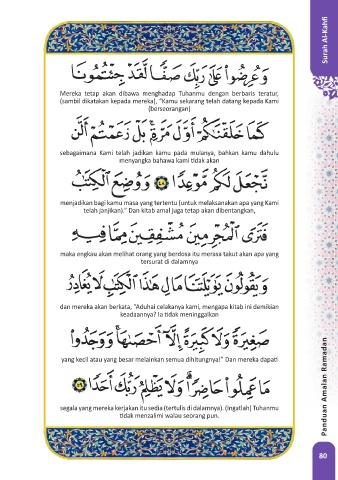 Surah Al-Kahfi
وَعُرِضُوا۟ عَلَىٰ رَبِّكَ صَفًّا لَّقَدْ جِئْتُمُونَا
Mereka tetap akan dibawa menghadap Tuhanmu dengan berbaris teratur,
(sambil dikatakan kepada mereka), “Kamu sekarang telah datang kepada Kami
(berseorangan)
كَمَا خَلَقْنَٰكُمْ أَوَّلَ مَرَّةٍۭ ۚ بَلْ زَعَمْتُمْ أَلَّن
sebagaimana Kami telah jadikan kamu pada mulanya, bahkan kamu dahulu
menyangka bahawa kami tidak akan
نَّجْعَلَ لَكُم مَّوْعِدًا ٤٨ وَوُضِعَ ٱلْكِتَٰبُ
menjadikan bagi kamu masa yang tertentu (untuk melaksanakan apa yang Kami
telah janjikan).” Dan kitab amal juga tetap akan dibentangkan,
فَتَرَى ٱلْمُجْرِمِينَ مُشْفِقِينَ مِمَّا فِيهِ
maka engkau akan melihat orang yang berdosa itu merasa takut akan apa yang
tersurat di dalamnya
وَيَقُولُونَ يَٰوَيْلَتَنَا مَالِ هَٰذَا ٱلْكِتَٰبِ لَا يُغَادِرُ
dan mereka akan berkata, “Aduhai celakanya kami, mengapa kitab ini demikian
keadaannya? Ia tidak meninggalkan
صَغِيرَةً وَلَا كَبِيرَةً إِلَّآ أَحْصَىٰهَا ۚ وَوَجَدُوا۟
yang kecil atau yang besar melainkan semua dihitungnya!” Dan mereka dapati
مَا عَمِلُوا۟ حَاضِرًا ۗ وَلَا يَظْلِمُ رَبُّكَ أَحَدًا ٤٩
segala yang mereka kerjakan itu sedia (tertulis di dalamnya). (Ingatlah) Tuhanmu
tidak menzalimi walau seorang pun.
Panduan Amalan Ramadan
80